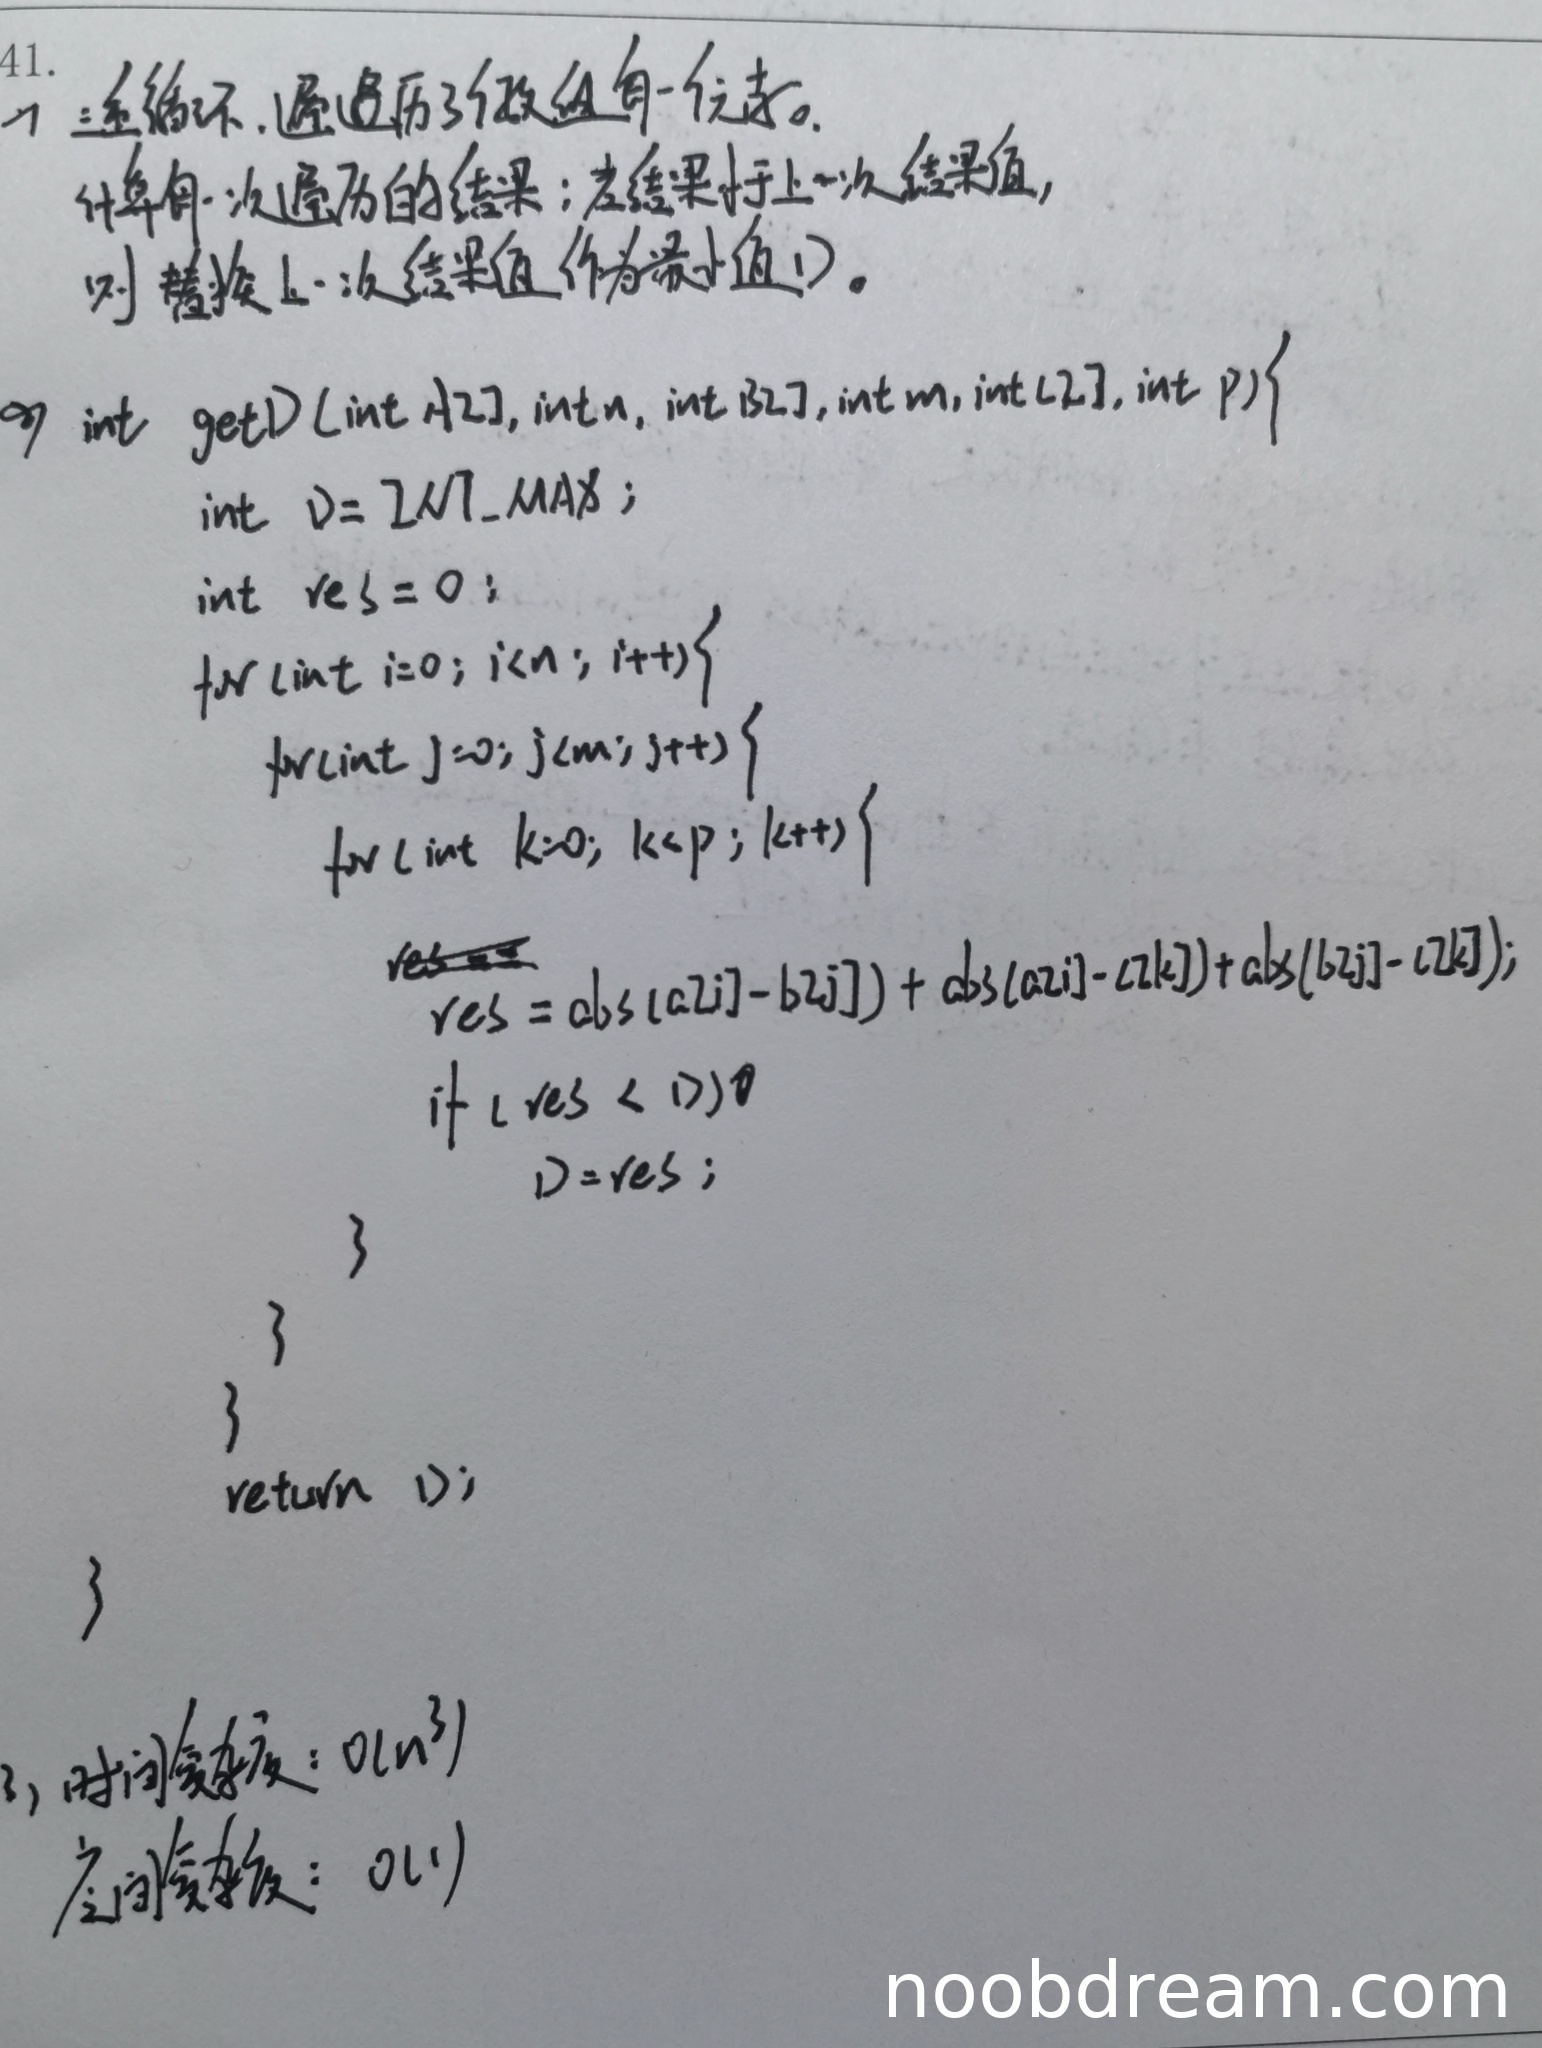 41.
1) 三重循环.遍历3个数组每一个元素。
计算每一次遍历的结果;若结果小于上一次结果值,
则替换上一次结果值作为最小值D。
2) int getD(int A[], int n, int B[], int m, int C[], int p){
int D = INT_MAX;
int res = 0;
for(int i=0; i<n; i++){
for(int j=0; j<m; j++){
for(int k=0; k<p; k++){
res = abs(a[i]-b[j]) + abs(a[i]-c[k])+abs(b[j]-c[k]);
if(res < D)
D=res;
}
}
}
return D;
}
3) 时间复杂度: O(n³)
空间复杂度: O(1)
noobdream.com